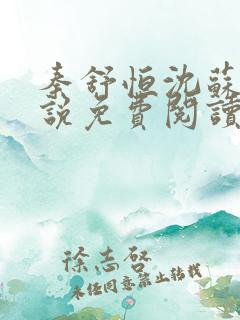 秦舒恒沈蘇
說免費閱讀
徐志啓
未经同意禁止转载